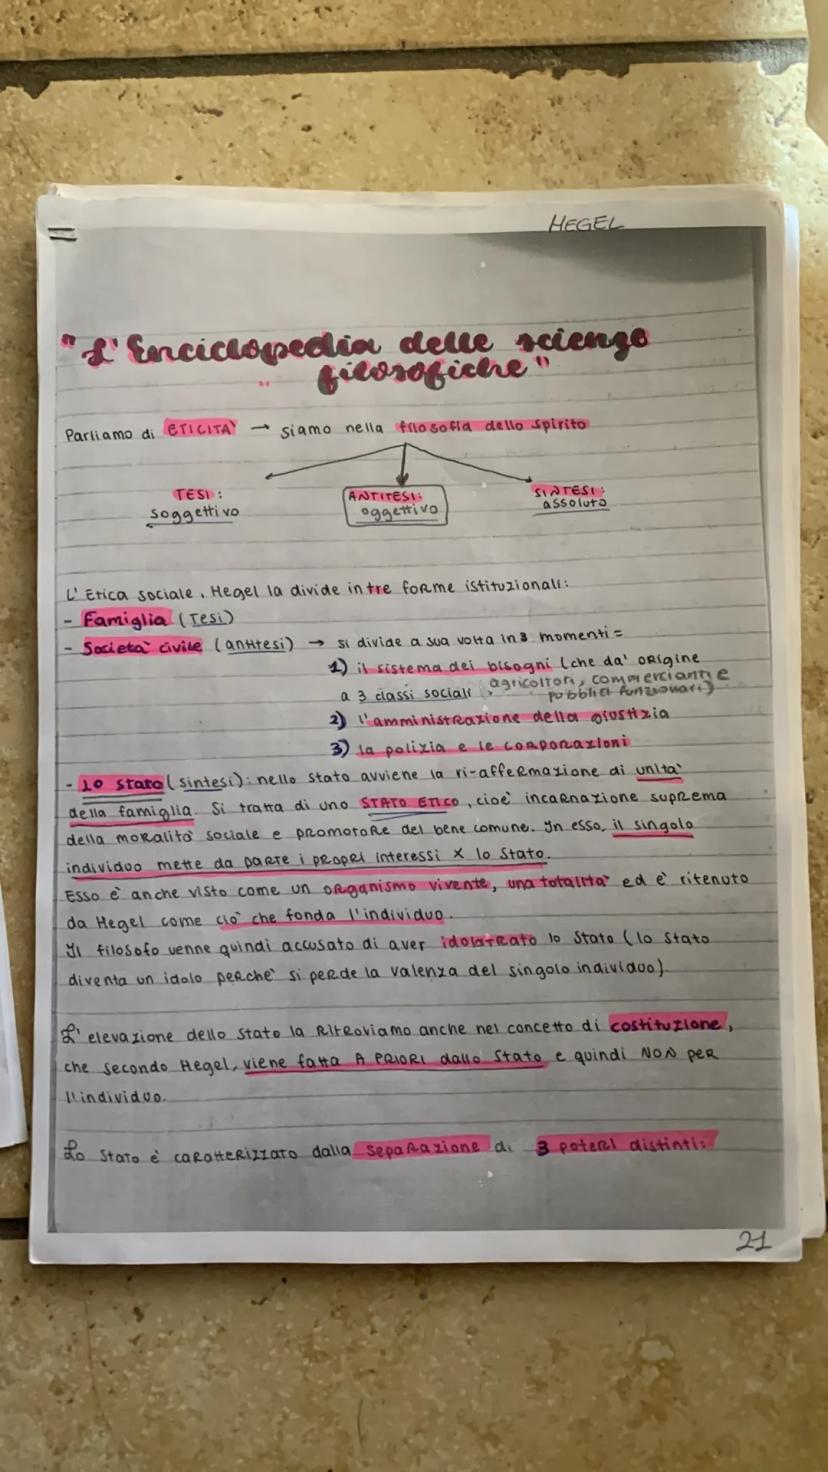 HEGEL
"L'Enciclopedia delle scienze
filosofiche"
Parliamo di ETICITA' → siamo nella filosofia dello spirito
TESI: ANTITESI: SINTESI:
soggettivo oggettivo assoluto
L'Etica sociale, Hegel la divide in tre forme istituzionali:
- Famiglia (Tesi)
- Società civile (antitesi) → si divide a sua volta in 3 momenti =
1) il sistema dei bisogni (che da' origine
a 3 classi sociali: agricoltori, commercianti e
pubblici funzionari)
2) l'amministrazione della giustizia
3) la polizia e le corporazioni
- Lo Stato (sintesi): nello Stato avviene la ri-affermazione di unita'
della famiglia. Si tratta di uno STATO ETICO, cioe' incarnazione suprema
della moralità sociale e promotore del bene comune. In esso, il singolo
individuo mette da parte i propri interessi x lo Stato.
Esso e' anche visto come un organismo vivente, una totalita' ed e' ritenuto
da Hegel come cio' che fonda l'individuo.
Il filosofo venne quindi accusato di aver idolatrato lo Stato (lo Stato
diventa un idolo perche' si perde la valenza del singolo individuo).
L'elevazione dello Stato la ritroviamo anche nel concetto di costituzione,
che secondo Hegel, viene fatta A PRIORI dallo Stato e quindi NON per
l'individuo.
Lo Stato è caratterizzato dalla separazione di 3 poteri distinti:
21